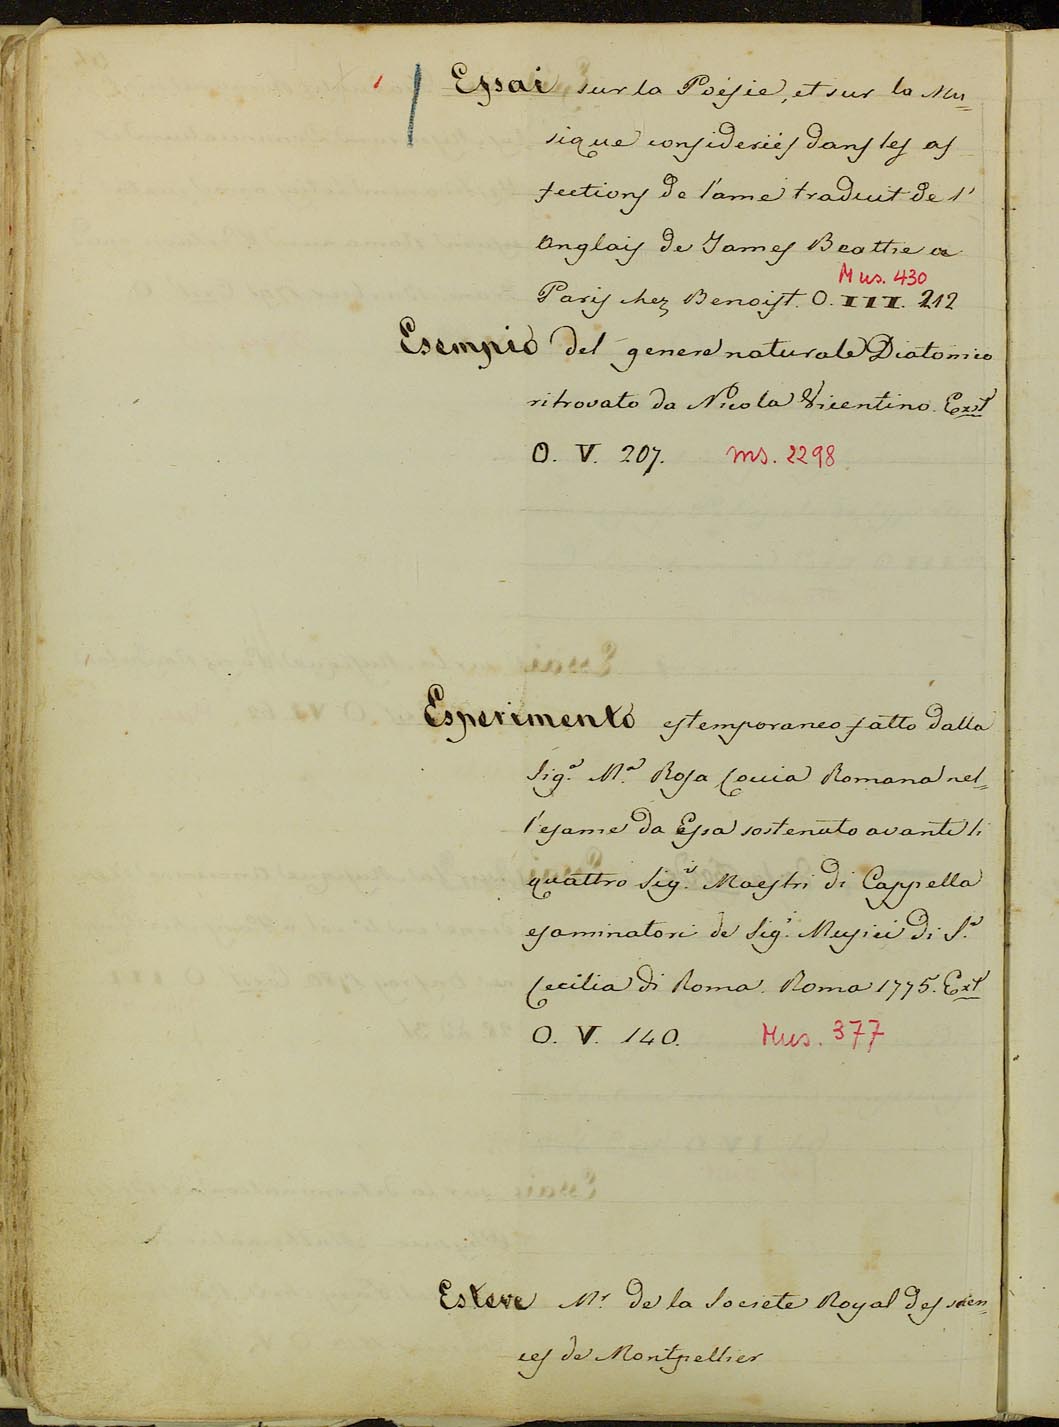 Essai sur la Poesie, et sur la Mu=
sique consideriés dans les af
fections de l'ame traduit de l'
Anglais de James Beattie a
Mus. 430
Paris chez Benoist. O. III. 212
Esempio del genere naturale Diatonico
ritrovato da Nicola Vicentino. Ext
O. V. 207. ms. 2298
Esperimento estemporaneo fatto dalla
Sig.a M.a Rosa Coccia Romana nel=
l'esame da Essa sostenuto avanti li
quattro Sig.i Maestri di Cappella
esaminatori de Sig.i Musici di S.a
Cecilia di Roma. Roma 1775. Ext
O. V. 140. Mus. 377
Esteve Mr. de la Societe Royal des scien=
ces de Montpellier